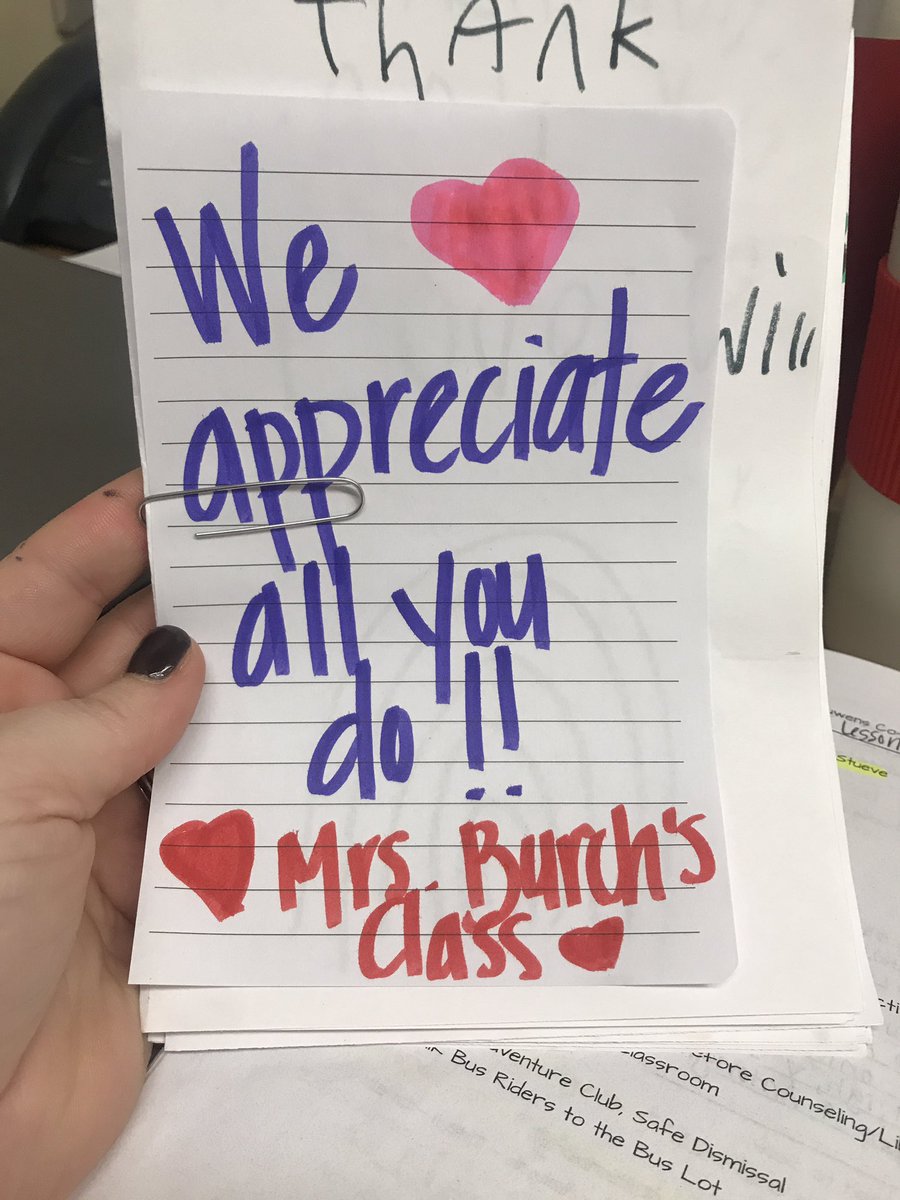 Thank
We
appreciate
all you
do!!
Mrs. Burch's
Class
Lesson
Stueve
fore Counseling/Li
classroom
venture Club, Safe Dismissal
Bus Riders to the Bus Lot